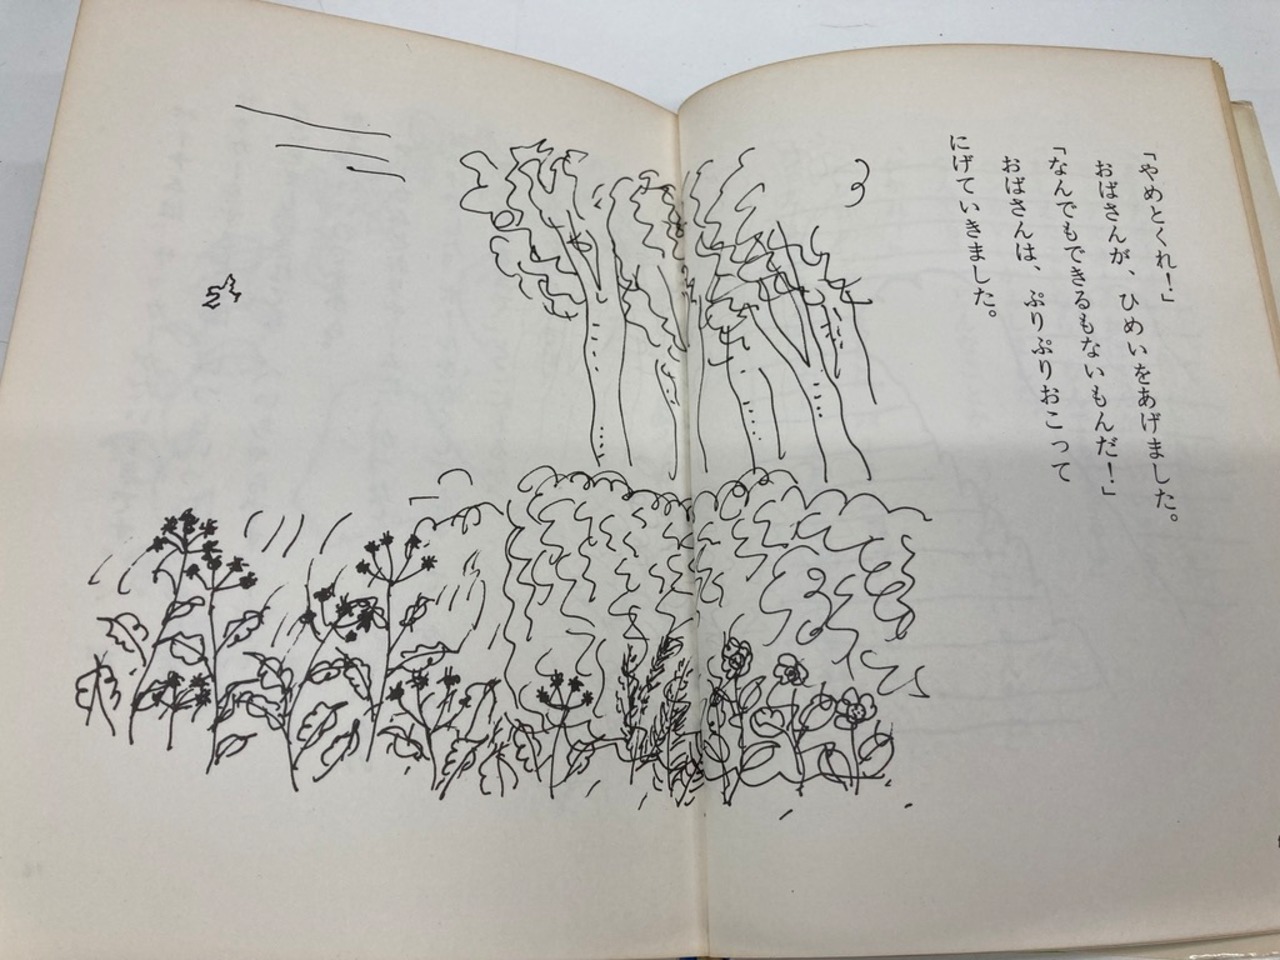 「やめとくれ！」
おばさんが、ひめいをあげました。
「なんでもできるもないもんだ！」
おばさんは、ぷりぷりおこって
にげていきました。